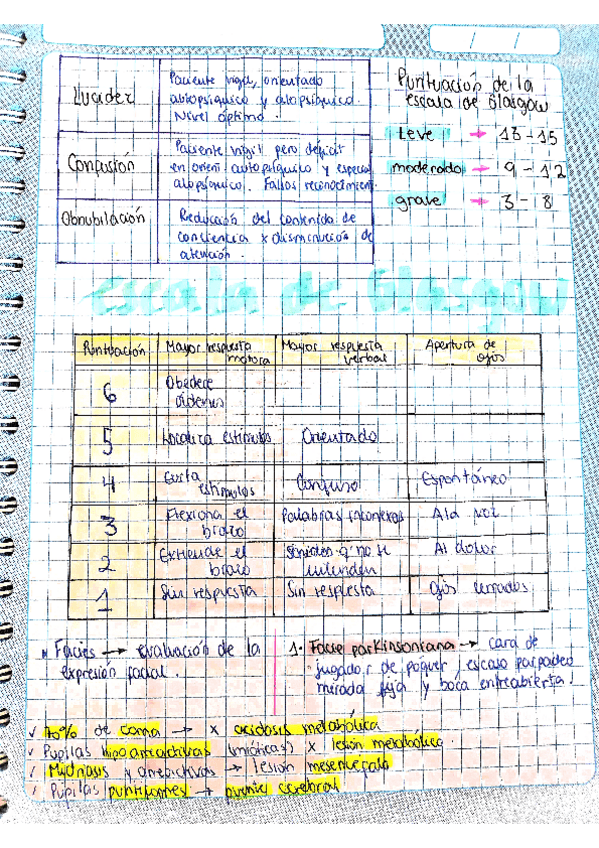 / /
Lucidez
Paciente vigil, orientado
autopsíquico y alopsíquico.
Nivel óptimo.
Confusión
Paciente vigil pero déficit
en orient. autopsíquico y especial
alopsíquico. Falsos reconocimient.
Obnubilación
Reducción del contenido de
conciencia x disminución de
atención.
Puntuación de la
escala de Glasgow
Leve → 13-15
moderado → 9-12
grave → 3-8
escala de Glasgow
Puntuación Mayor respuesta motora Mayor respuesta verbal Apertura de ojos
6 Obedece órdenes
5 Localiza estímulos Orientado
4 Evita estímulos Confuso Espontáneo
3 Flexiona el brazo Palabras inconexas A la voz
2 Extiende el brazo Sonidos q' no se entienden Al dolor
1 Sin respuesta Sin respuesta Ojos cerrados
Facies → evaluación de la
expresión facial.
1. Facie parkinsoniana → cara de
jugador de poquer, escaso parpadeo
mirada fija y boca entreabierta.
✓ 70% de coma → x acidosis metabólica
✓ Pupilas hipoarreactivas (mióticas) x lesión metabólica.
✓ Mydriasis y arreactivas → lesión mesencefalo
✓ Pupilas puntiformes → puente cerebral